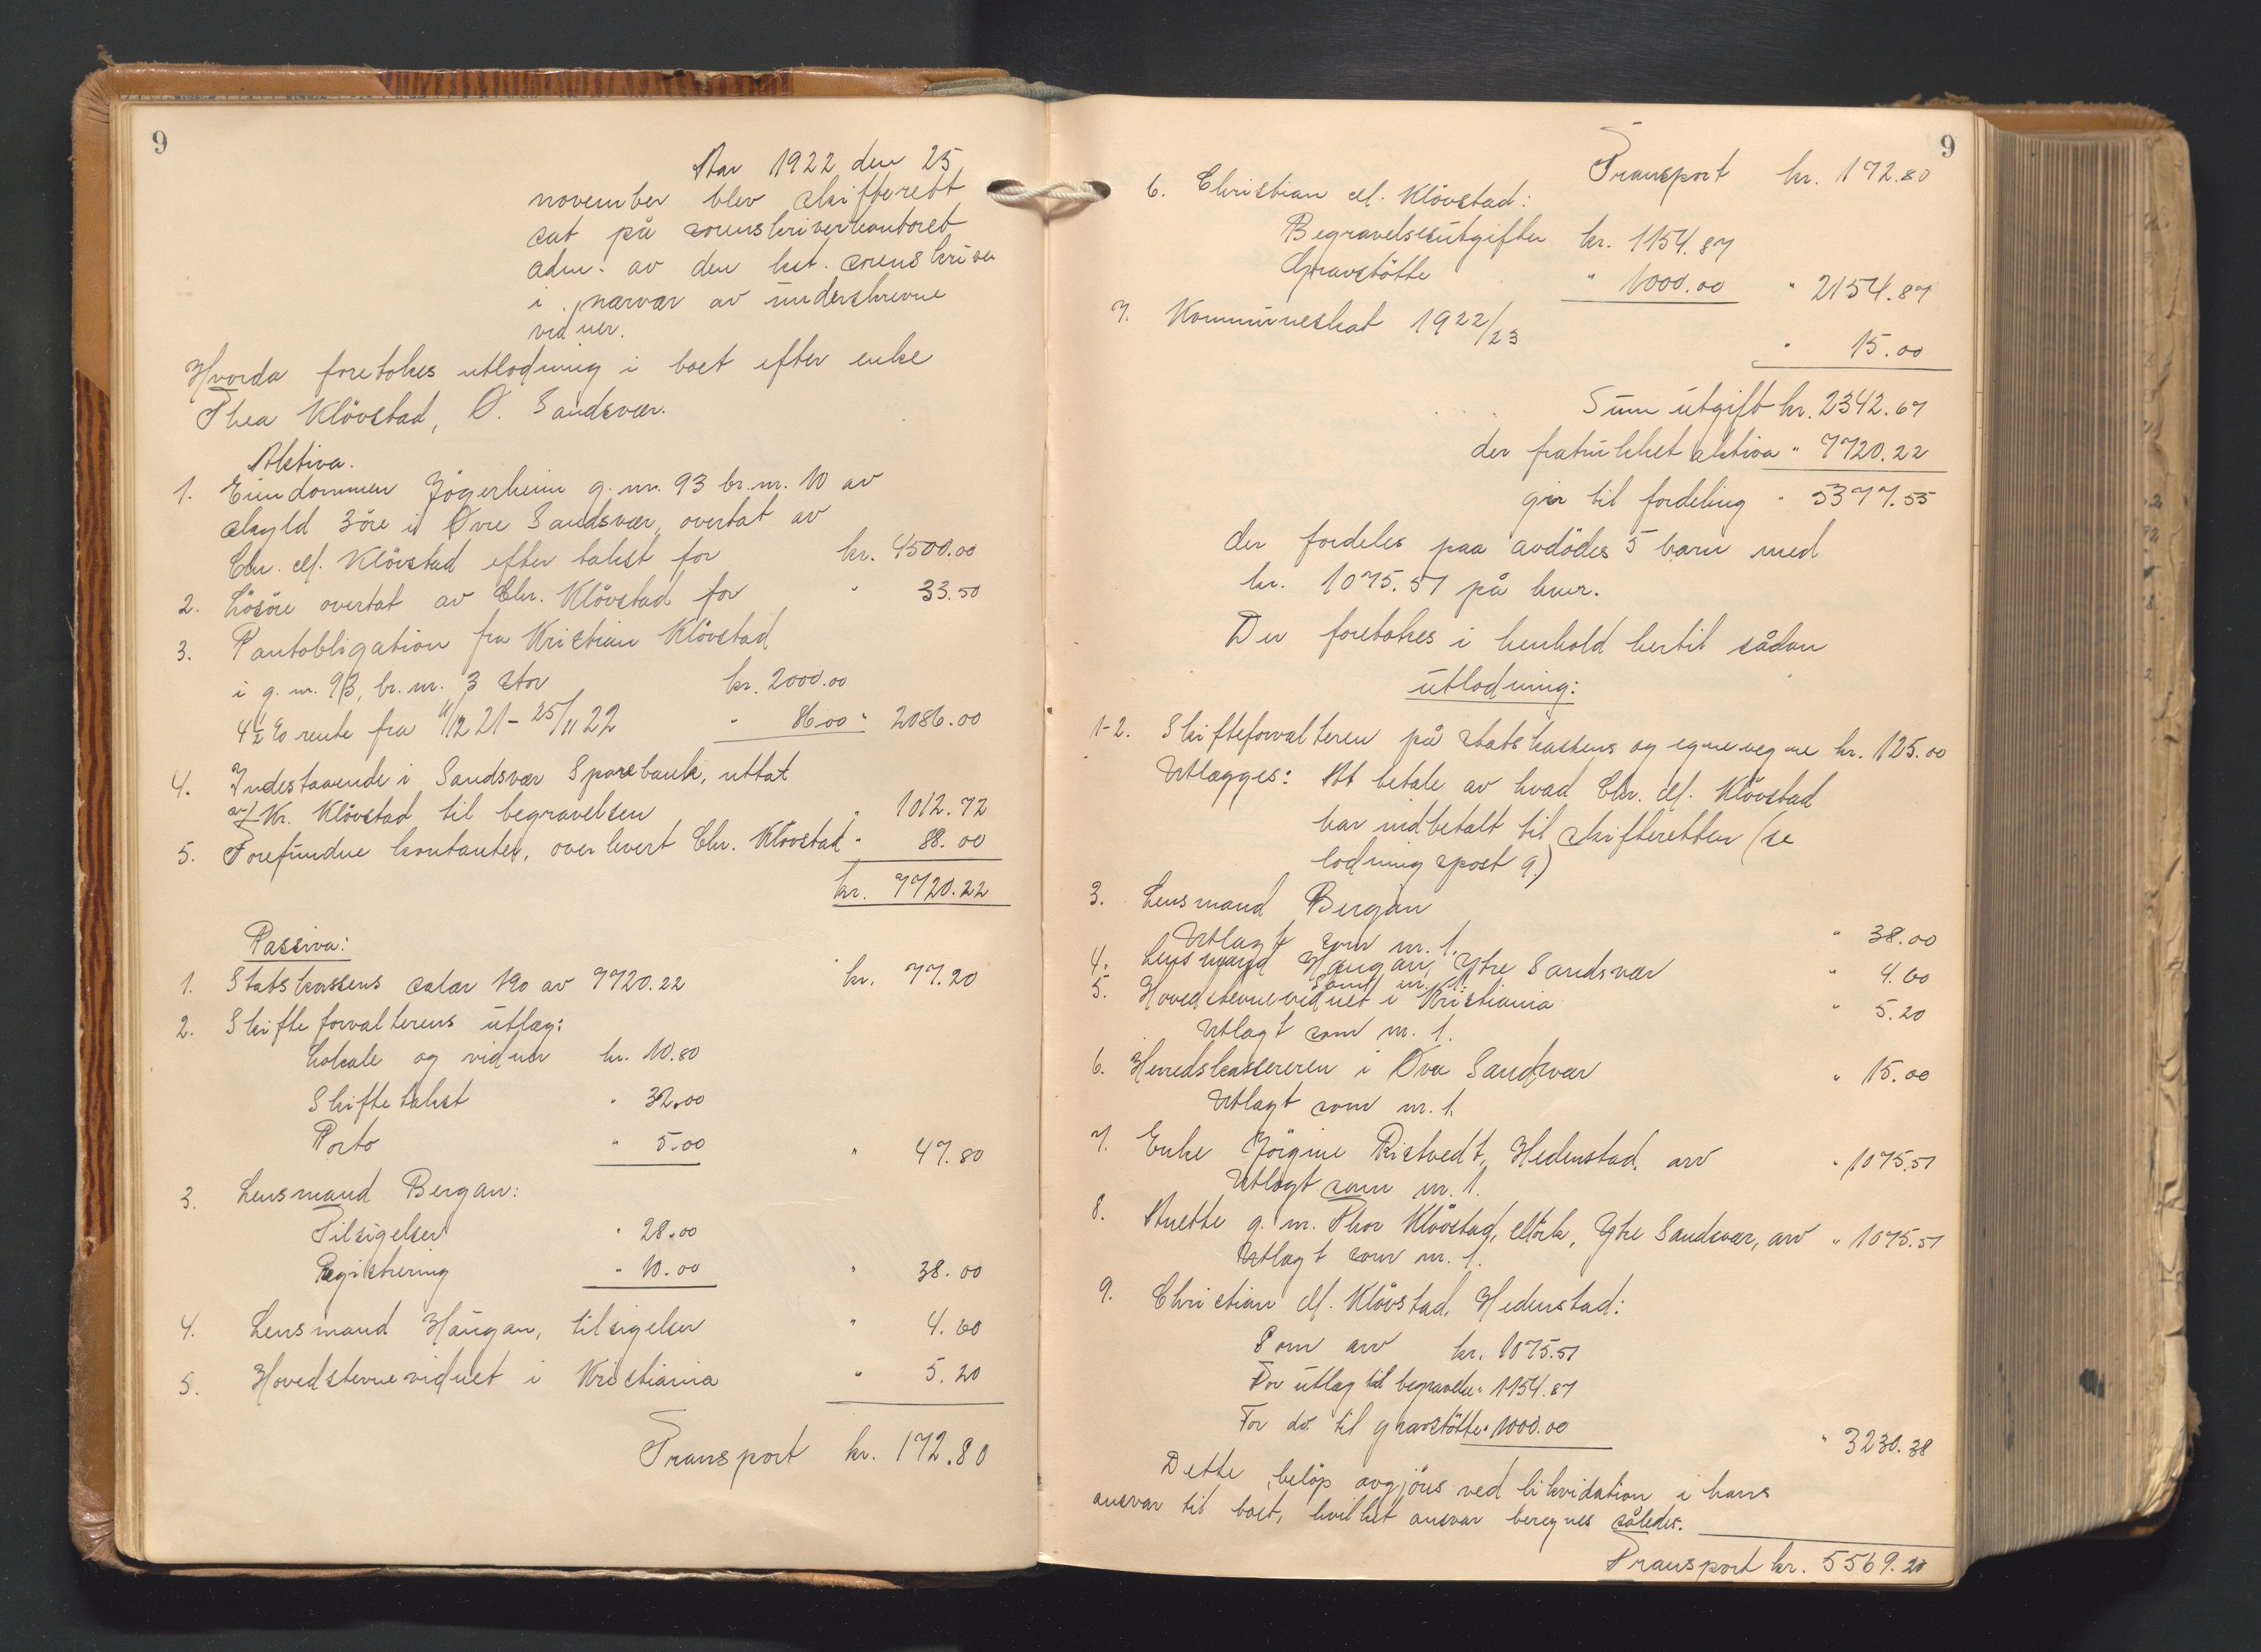 9
Aar 1922 den 25
november blev skifterett
sat på sorenskriverkontoret
adm. av den kst. sorenskriver
i nærvær av underskrevne
vidner.
Hvorda foretokes utlodning i boet efter enke
Thea Klövstad, Ö. Sandsvær.
Aktiva.
1. Eiendommen Jögerheim g. nr. 93 br. nr. 10 av
skyld 3 öre i Övre Sandsvær, overtat av
Chr. M. Klövstad efter takst for kr. 4500.00
2. Lösöre overtat av Chr. Klövstad for " 33.50
3. Pantobligation fra Kristian Klövstad
i g. nr. 93, br. nr. 3 stor kr. 2000.00
4 1/2 % rente fra 11/12 21 - 25/11 22 " 86.00 " 2086.00
4. Indestaaende i Sandsvær Sparebank, uttat
av Kr. Klövstad til begravelsen " 1012.72
5. Forefundne kontanter, overlevert Chr. Klövstad " 88.00
kr. 7720.22
Passiva:
1. Statskassens salær 1% av 7720.22 kr. 77.20
2. Skifteforvalterens utlæg:
Lokale og vidner kr. 10.80
Skiftetakst " 32.00
Porto " 5.00 " 47.80
3. Lensmand Bergan:
Tilsigelser " 28.00
Registrering " 10.00 " 38.00
4. Lensmand Haugan, tilsigelser " 4.60
5. Hovedstevnevidnet i Kristiania " 5.20
Transport kr. 172.80
9
Transport kr. 172.80
6. Christian M. Klövstad:
Begravelsesutgifter kr. 1154.87
Gravstötte " 1000.00 " 2154.87
7. Kommuneskat 1922/23 " 15.00
Sum utgift kr. 2342.67
der fratrukket aktiva " 7720.22
gir til fordeling " 5377.55
der fordeles paa avdödes 5 barn med
kr. 1075.51 på hver.
Der foretokes i henhold hertil sådan
utlodning:
1-2. Skifteforvalteren på statskassens og egne vegne kr. 125.00
Utlægges: At betale av hvad Chr. M. Klövstad
har indbetalt til skifteretten (se
lodningspost 9.)
3. Lensmand Bergan " 38.00
Utlagt som nr. 1.
4. Lensmand Haugan, Ytre Sandsvær " 4.60
Som nr. 1.
5. Hovedstevnevidnet i Kristiania " 5.20
Utlagt som nr. 1.
6. Herredskassereren i Övre Sandsvær " 15.00
Utlagt som nr. 1.
7. Enke Jörgine Ristvedt, Hedenstad, arv " 1075.51
Utlagt som nr. 1.
8. Anette g. m. Thor Klövstad, Mörk, Ytre Sandsvær, arv " 1075.51
Utlagt som nr. 1.
9. Christian M. Klövstad, Hedenstad:
Som arv kr. 1075.51
For utlæg til begravelse " 1154.87
For do. til gravstötte " 1000.00 " 3230.38
Dette belöp avgjöres ved likvidation i hans
ansvar til boet, hvilket ansvar beregnes således.
Transport kr. 5569.20